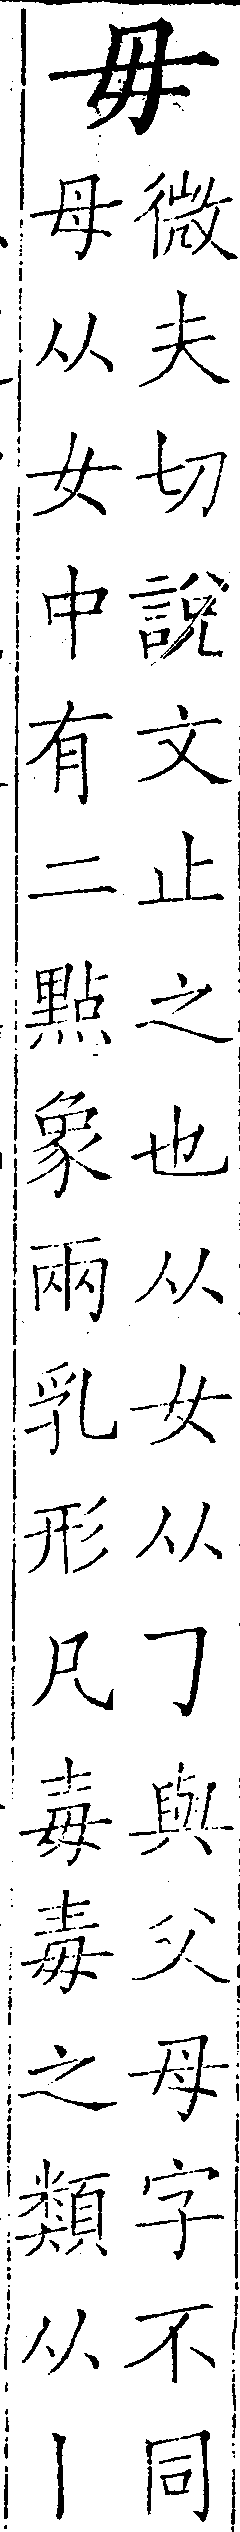 毋
微夫切說文止之也从女从㇆與父母字不同
母从女中有二點象兩乳形凡毐毒之類从丨